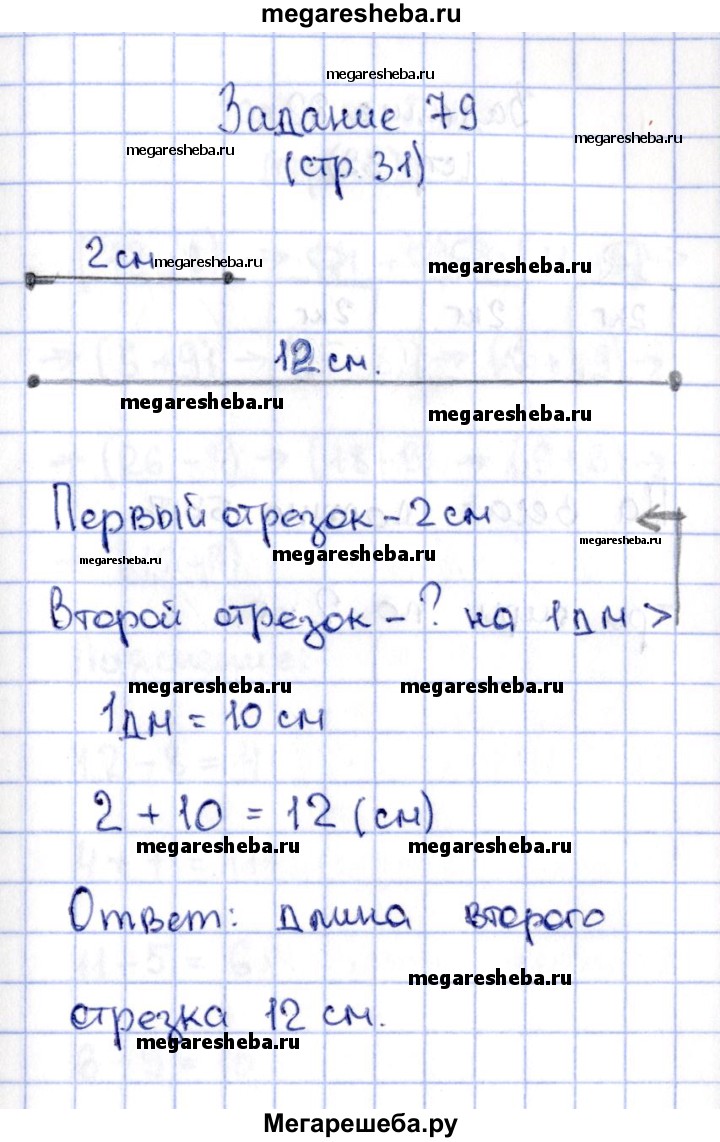 megaresheba.ru
megaresheba.ru
Задание 79
megaresheba.ru
megaresheba.ru
(стр. 31)
2 см
megaresheba.ru
megaresheba.ru
12 см.
megaresheba.ru
megaresheba.ru
Первый отрезок - 2 см
megaresheba.ru
megaresheba.ru
megaresheba.ru
Второй отрезок - ? на 1 дм >
megaresheba.ru
megaresheba.ru
1 дм = 10 см
2 + 10 = 12 (см)
megaresheba.ru
megaresheba.ru
Ответ: длина второго
megaresheba.ru
отрезка 12 см.
megaresheba.ru
Мегарешеба.ру